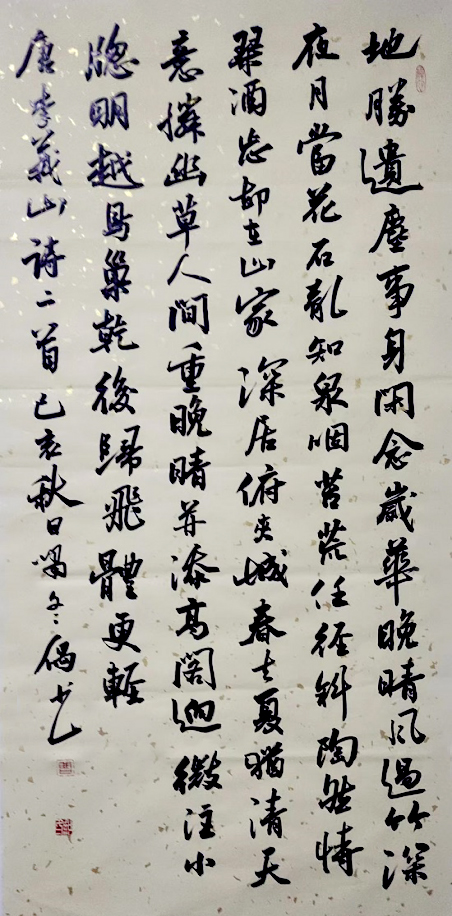 地勝遺塵事身閑念歲華晚晴风過竹深
夜月當花石亂知泉咽苔荒任徑斜陶然恃
琴酒忘却在山家深居俯夾城春去夏猶清天
意憐幽草人間重晚晴并添高閣迥微注小
牕明越鳥巢乾後歸飛體更輕
唐李義山詩二首己亥秋日偶书